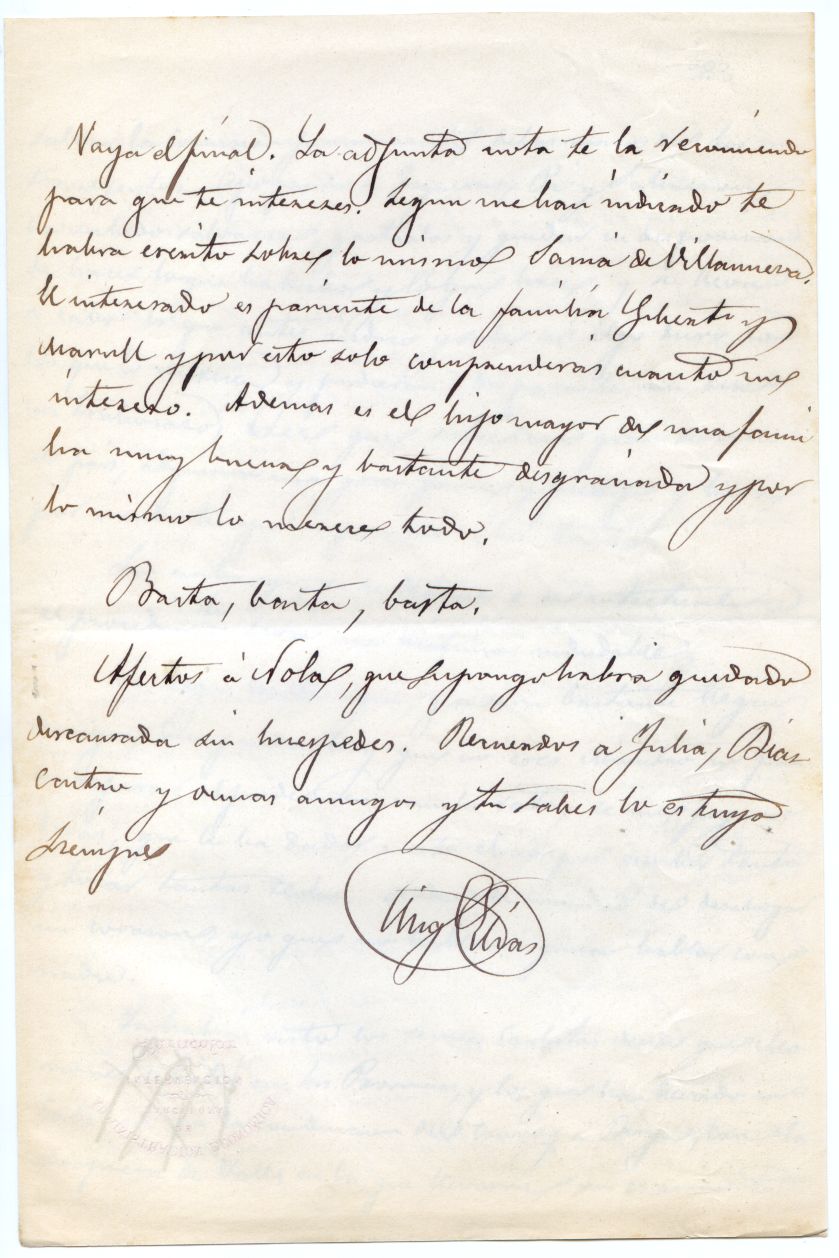 Vaya el final. La adjunta nota te la recomiendo
para que te intereses. Segun me han indicado te
habra escrito sobre lo mismo Samá de Villanueva.
El interesado es pariente de la familia Gibert y
Marull y por esto solo comprenderás cuanto me
intereso. Ademas es el hijo mayor de una fami
lia muy buena y bastante desgraciada y por
lo mismo lo merece todo.
Basta, basta, basta.
Afectos á Nola, que supongo habra quedado
descansada sin huespedes. Recuerdos á Julia, Dias
Castro y demas amigos y tu sabes lo es tuyo
siempre
Puig